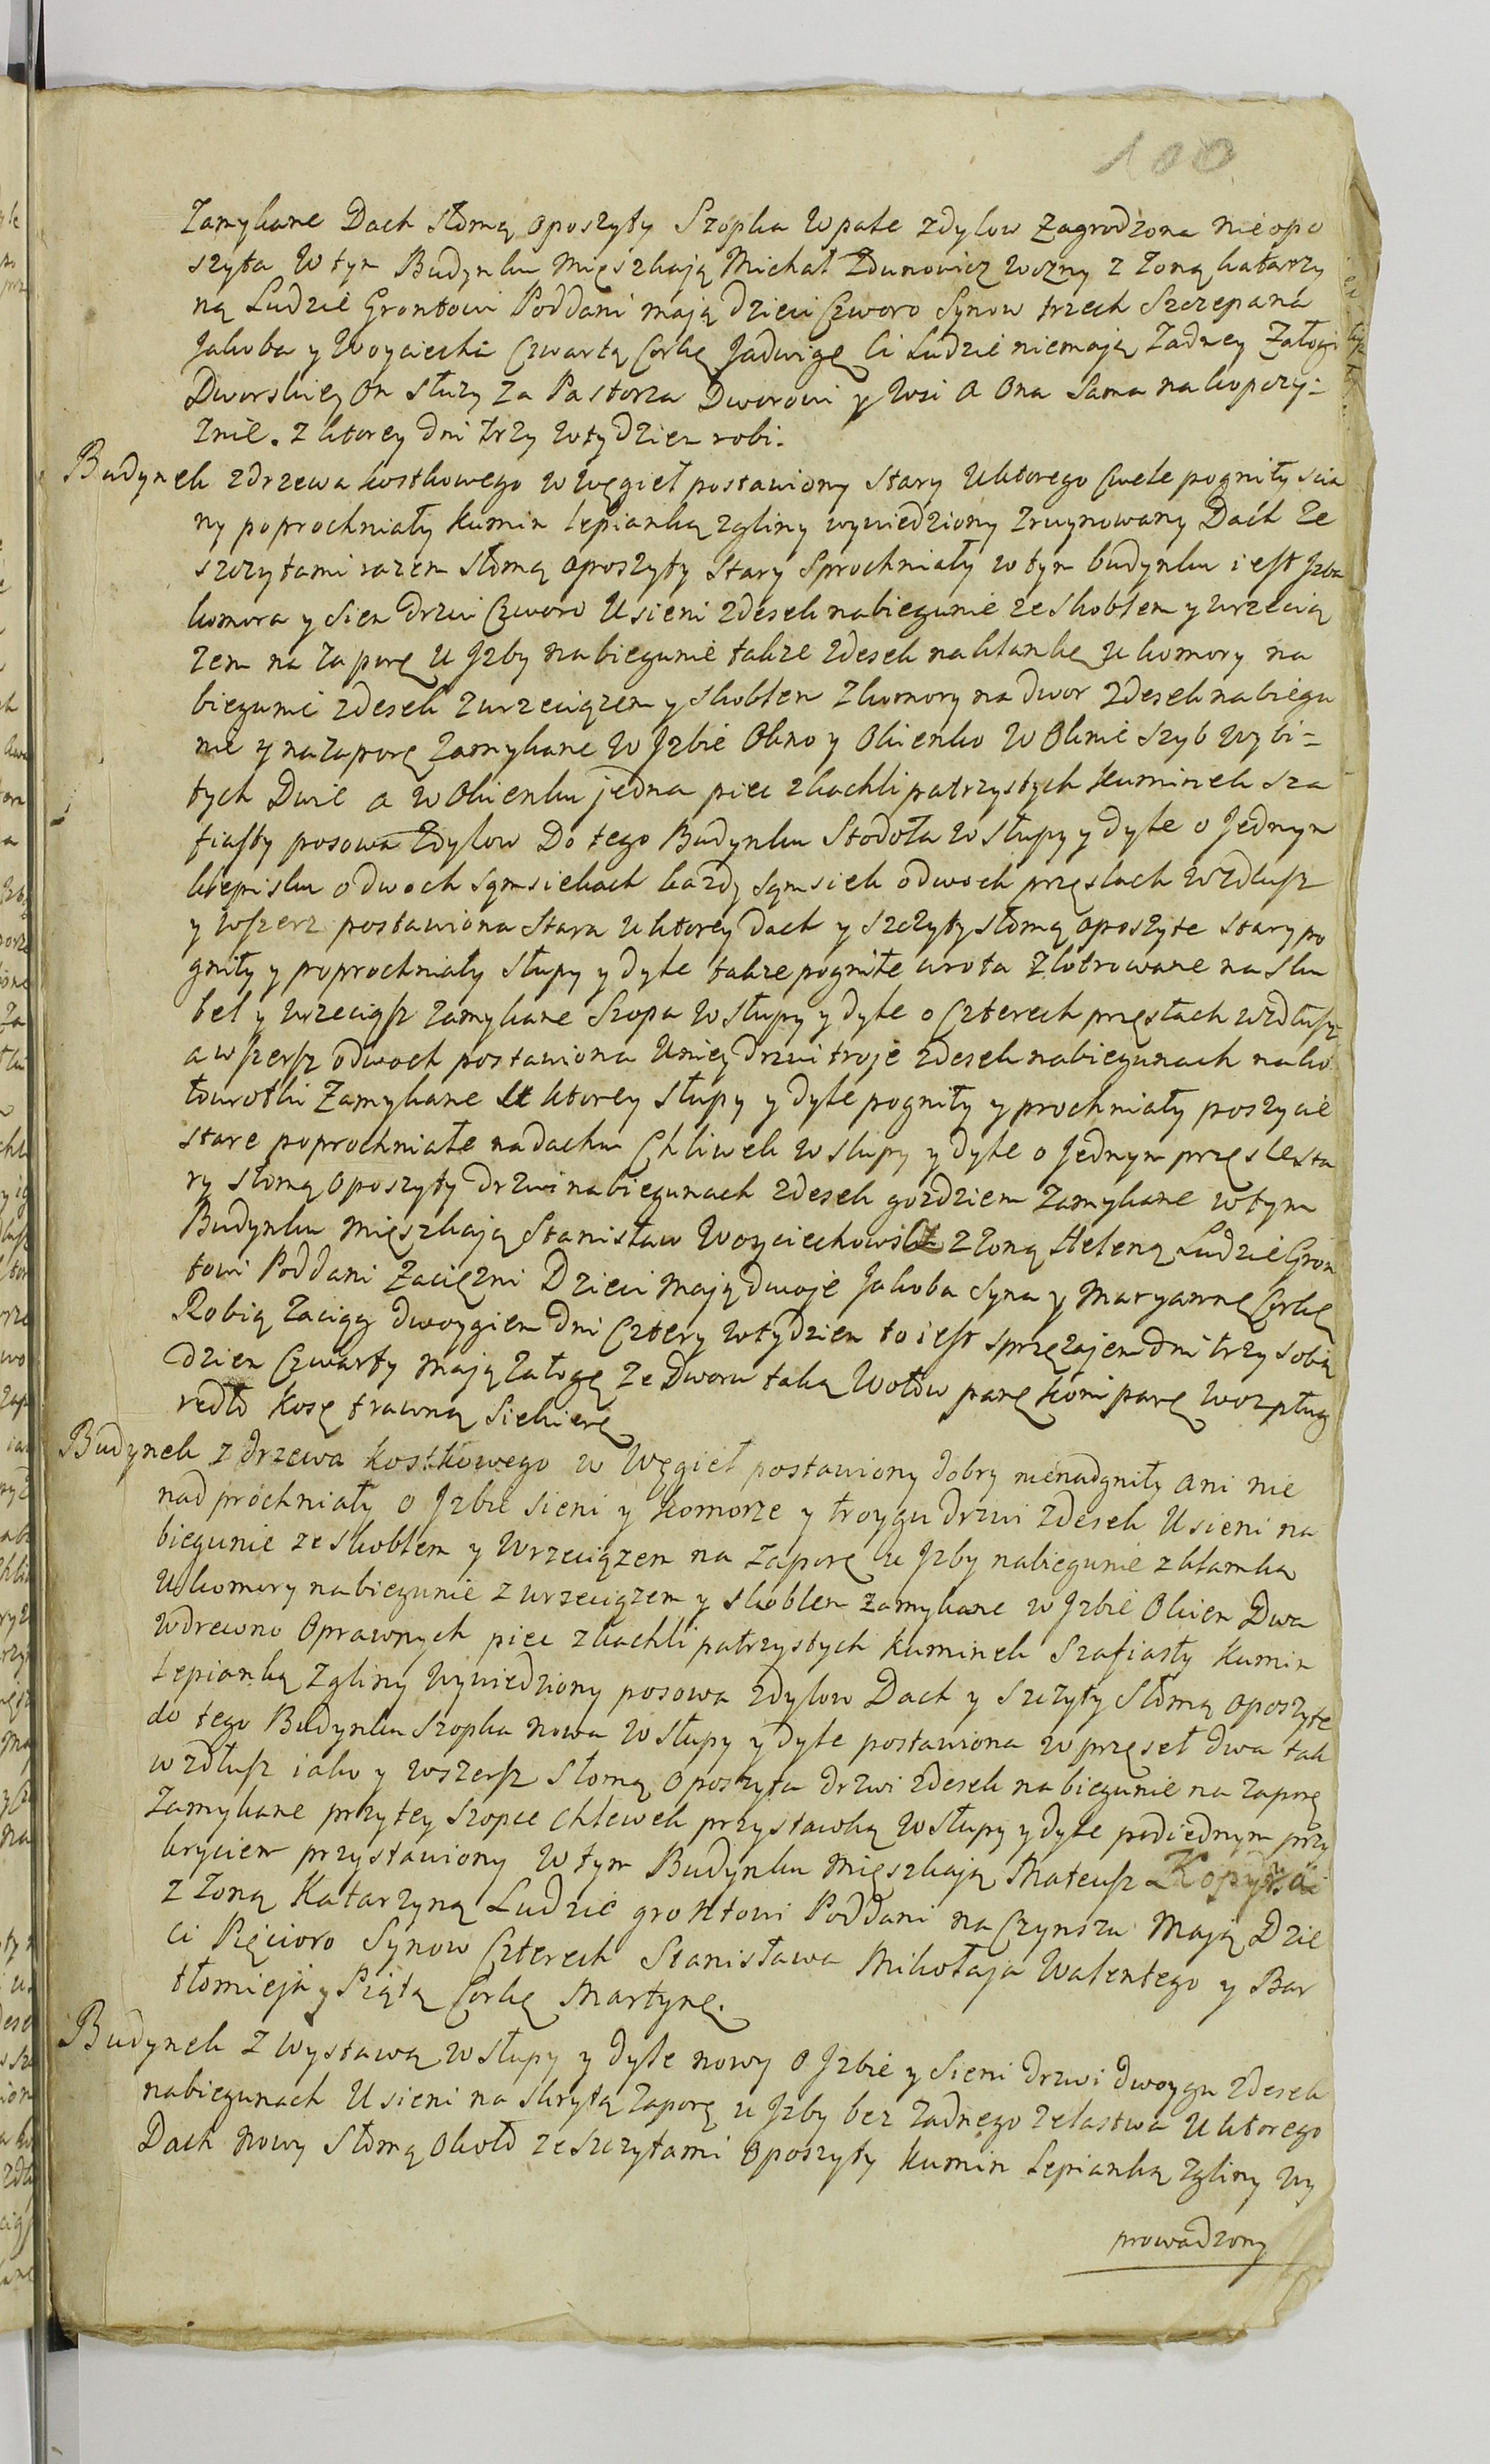 100
Zamykane Dach słomą oposzyty Szopka w pale z dylow Zagrodzona nie opo
szyta W tym Budynku mięszkaią Michał Zdunowicz wozny z Zoną katarzy
ną Ludzie Grontowi Poddani mają dzieci Czworo Synow trzech Szczepana
Jakoba y Woyciecha Czwartą Corkę Jadwigę Ci Ludzie niemają Zadney Załogi
Dworskiey On słuzy za Pastorza Dworowi y Wsi a Ona Sama na kopczy=
znie. z ktorey dni trzy w tydzien robi.
Budynek z drzewa kostkowego w Węgieł postawiony Stary U ktorego Cwele pogniły scia
ny poprochniały kumin lepianką z gliny wywiedziony Zruynowany Dach ze
szczytami razem słomą oposzyty Stary Sprochniały w tym budynku iest Jzba
komora y Sien Drzwi Czworo U sieni z desek na biegunie ze Skoblem y wrzecią
zem na Zaporę U Jzby na biegunie takze z desek na klamkę u komory na
biegunie z desek z wrzeciązem y skoblem z komory na dwor z desek na biegu
nie y na zaporę Zamykane W Jzbie Okno y Okienko W Oknie szyb wybi=
tych Dwie a w Okienku jedna piec z kachli patrzystych kuminek sza
fiasty posowa z dylow Do tego Budynku Stodoła w słupy y dyle o Jednym
klepisku o dwoch sąmsiekach kazdy sąmsiek o dwoch przęslach wzdłusz
y wszerz postawiona Stara u ktorey dach y szczyty słomą oposzyte stary po
gniły y poprochniały słupy y dyle takze pogniłe wrota Zlotrowane na sko
bel y wrzeciąsz zamykane Szopa w słupy y dyle o Czterech przęsłach wzdłusz
a wszersz o dwoch postawiona U niey drzwi troje z desek na biegunach na ko
łowrotki Zamykane U ktorey słupy y dyle pogniły y prochniały poszycie
stare poprochniałe na dachu Chliwek w slupy y dyle o Jednym przęsle sta
ry słomą oposzyty drzwi na biegunach z desek gozdziem Zamykane w tym
Budynku mięszkają Stanisław Woyciechowski z Zoną Heleną Ludzie Gron
towi Poddani Zaciężni Dzieci mają dwoje Jakoba Syna y Maryannę Corkę
Robią Zaciąg dwoygiem dni Cztery w tydzien to iest sprzęzajem dni trzy sobą
dzien Czwarty mają Załogę ze Dworu taką Wołow parę koni parę woz pług
redło kosę trawną Siekierę
Budynek z drzewa kostkowego w Węgieł postawiony dobry nienadgniły ani nie
nadprochniały o Jzbie sieni y komorze y troygu drzwi z desek U sieni na
biegunie ze Skoblem y Wrzeciązem na Zaporę u Jzby na biegunie z klamką
U komory na biegunie z wrzeciązem y skoblem zamykane w Jzbie Okien Dwa
w drewno Oprawnych piec z kachli patrzystych kuminek Szafiasty kumin
Lepianką z gliny Wywiedziony posowa z dylow Dach y szczyty Słomą oposzyte
do tego Budynku szopka nowa w słupy y dyle postawiona w przęseł dwa tak
wzdłusz iako y wszersz słomą oposzyta drzwi z desek na biegunie na zaporę
Zamykane przy tey szopce Chlewek przystawką w słupy y dyle pod iednym przy
kryciem przystawiony W tym Budynku mięszkają Mateusz
z Zoną Katarzyną Ludzie grontowi Poddani na Czynszu Mają Dzie
ci Pięcioro Synow Czterech Stanisława Mikołaja Walentego y Bar
tłomieja y Piątą Corkę Martynę.
Budynek z Wystawą w słupy y dyle nowy o Jzbie y Sieni drzwi dwoygu z desek
na biegunach U sieni na skrytą Zaporę u Jzby bez zadnego zelastwa U ktorego
Dach nowy słomą około ze szczytami oposzyty kumin Lepianką z gliny wy
prowadzony